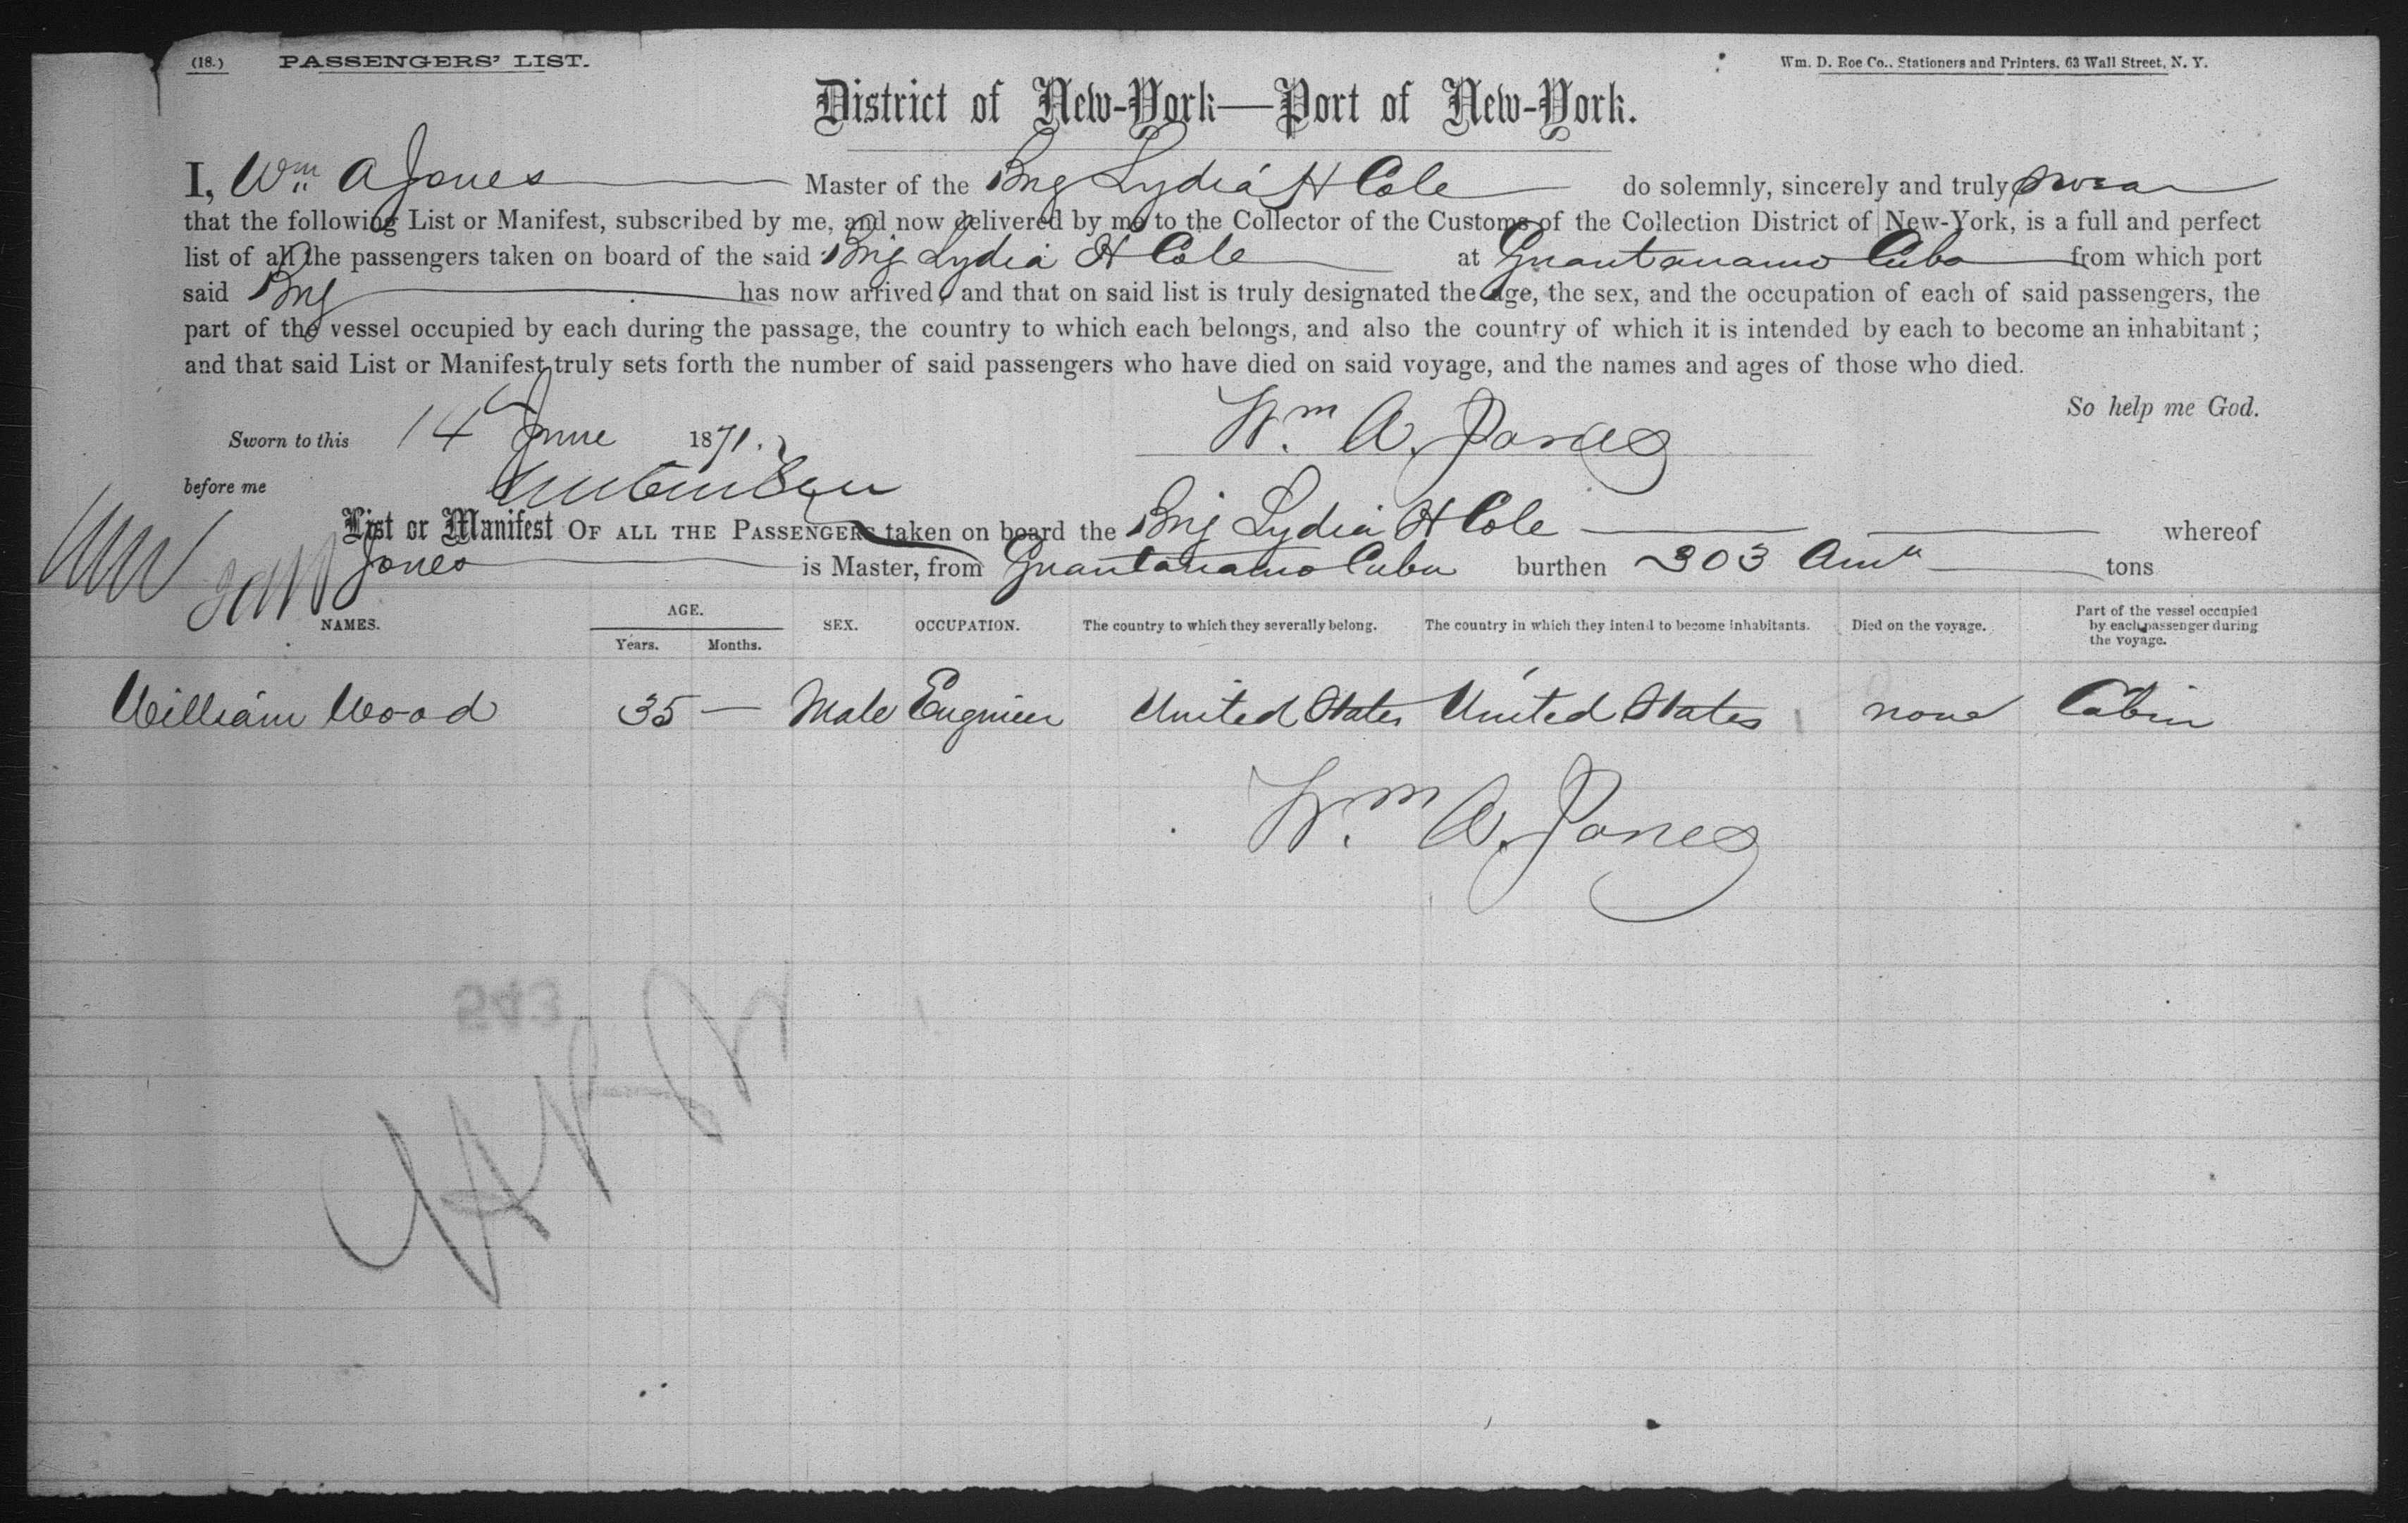 (18.) PASSENGERS' LIST.
Wm. D. Roe Co.. Stationers and Printers. 63 Wall Street, N. Y.
District of New-York—Port of New-York.
I, Wm A Jones Master of the Brig Lydia H Cole do solemnly, sincerely and truly swear
that the following List or Manifest, subscribed by me, and now delivered by me to the Collector of the Customs of the Collection District of New-York, is a full and perfect
list of all the passengers taken on board of the said Brig Lydia H Cole at Guantanamo Cuba from which port
said Brig has now arrived, and that on said list is truly designated the age, the sex, and the occupation of each of said passengers, the
part of the vessel occupied by each during the passage, the country to which each belongs, and also the country of which it is intended by each to become an inhabitant ;
and that said List or Manifest truly sets forth the number of said passengers who have died on said voyage, and the names and ages of those who died.
So help me God.
Sworn to this 14 June 1871. Wm. A. Jones
before me
List or Manifest OF ALL THE PASSENGERS taken on board the Brig Lydia H Cole whereof
Jones is Master, from Guantanamo Cuba burthen 303 tons
NAMES. AGE. Years. Months. SEX. OCCUPATION. The country to which they severally belong. The country in which they intend to become inhabitants. Died on the voyage. Part of the vessel occupied by each passenger during the voyage.
William Wood 35 — Male Engineer United States United States none Cabin
Wm. A. Jones
543